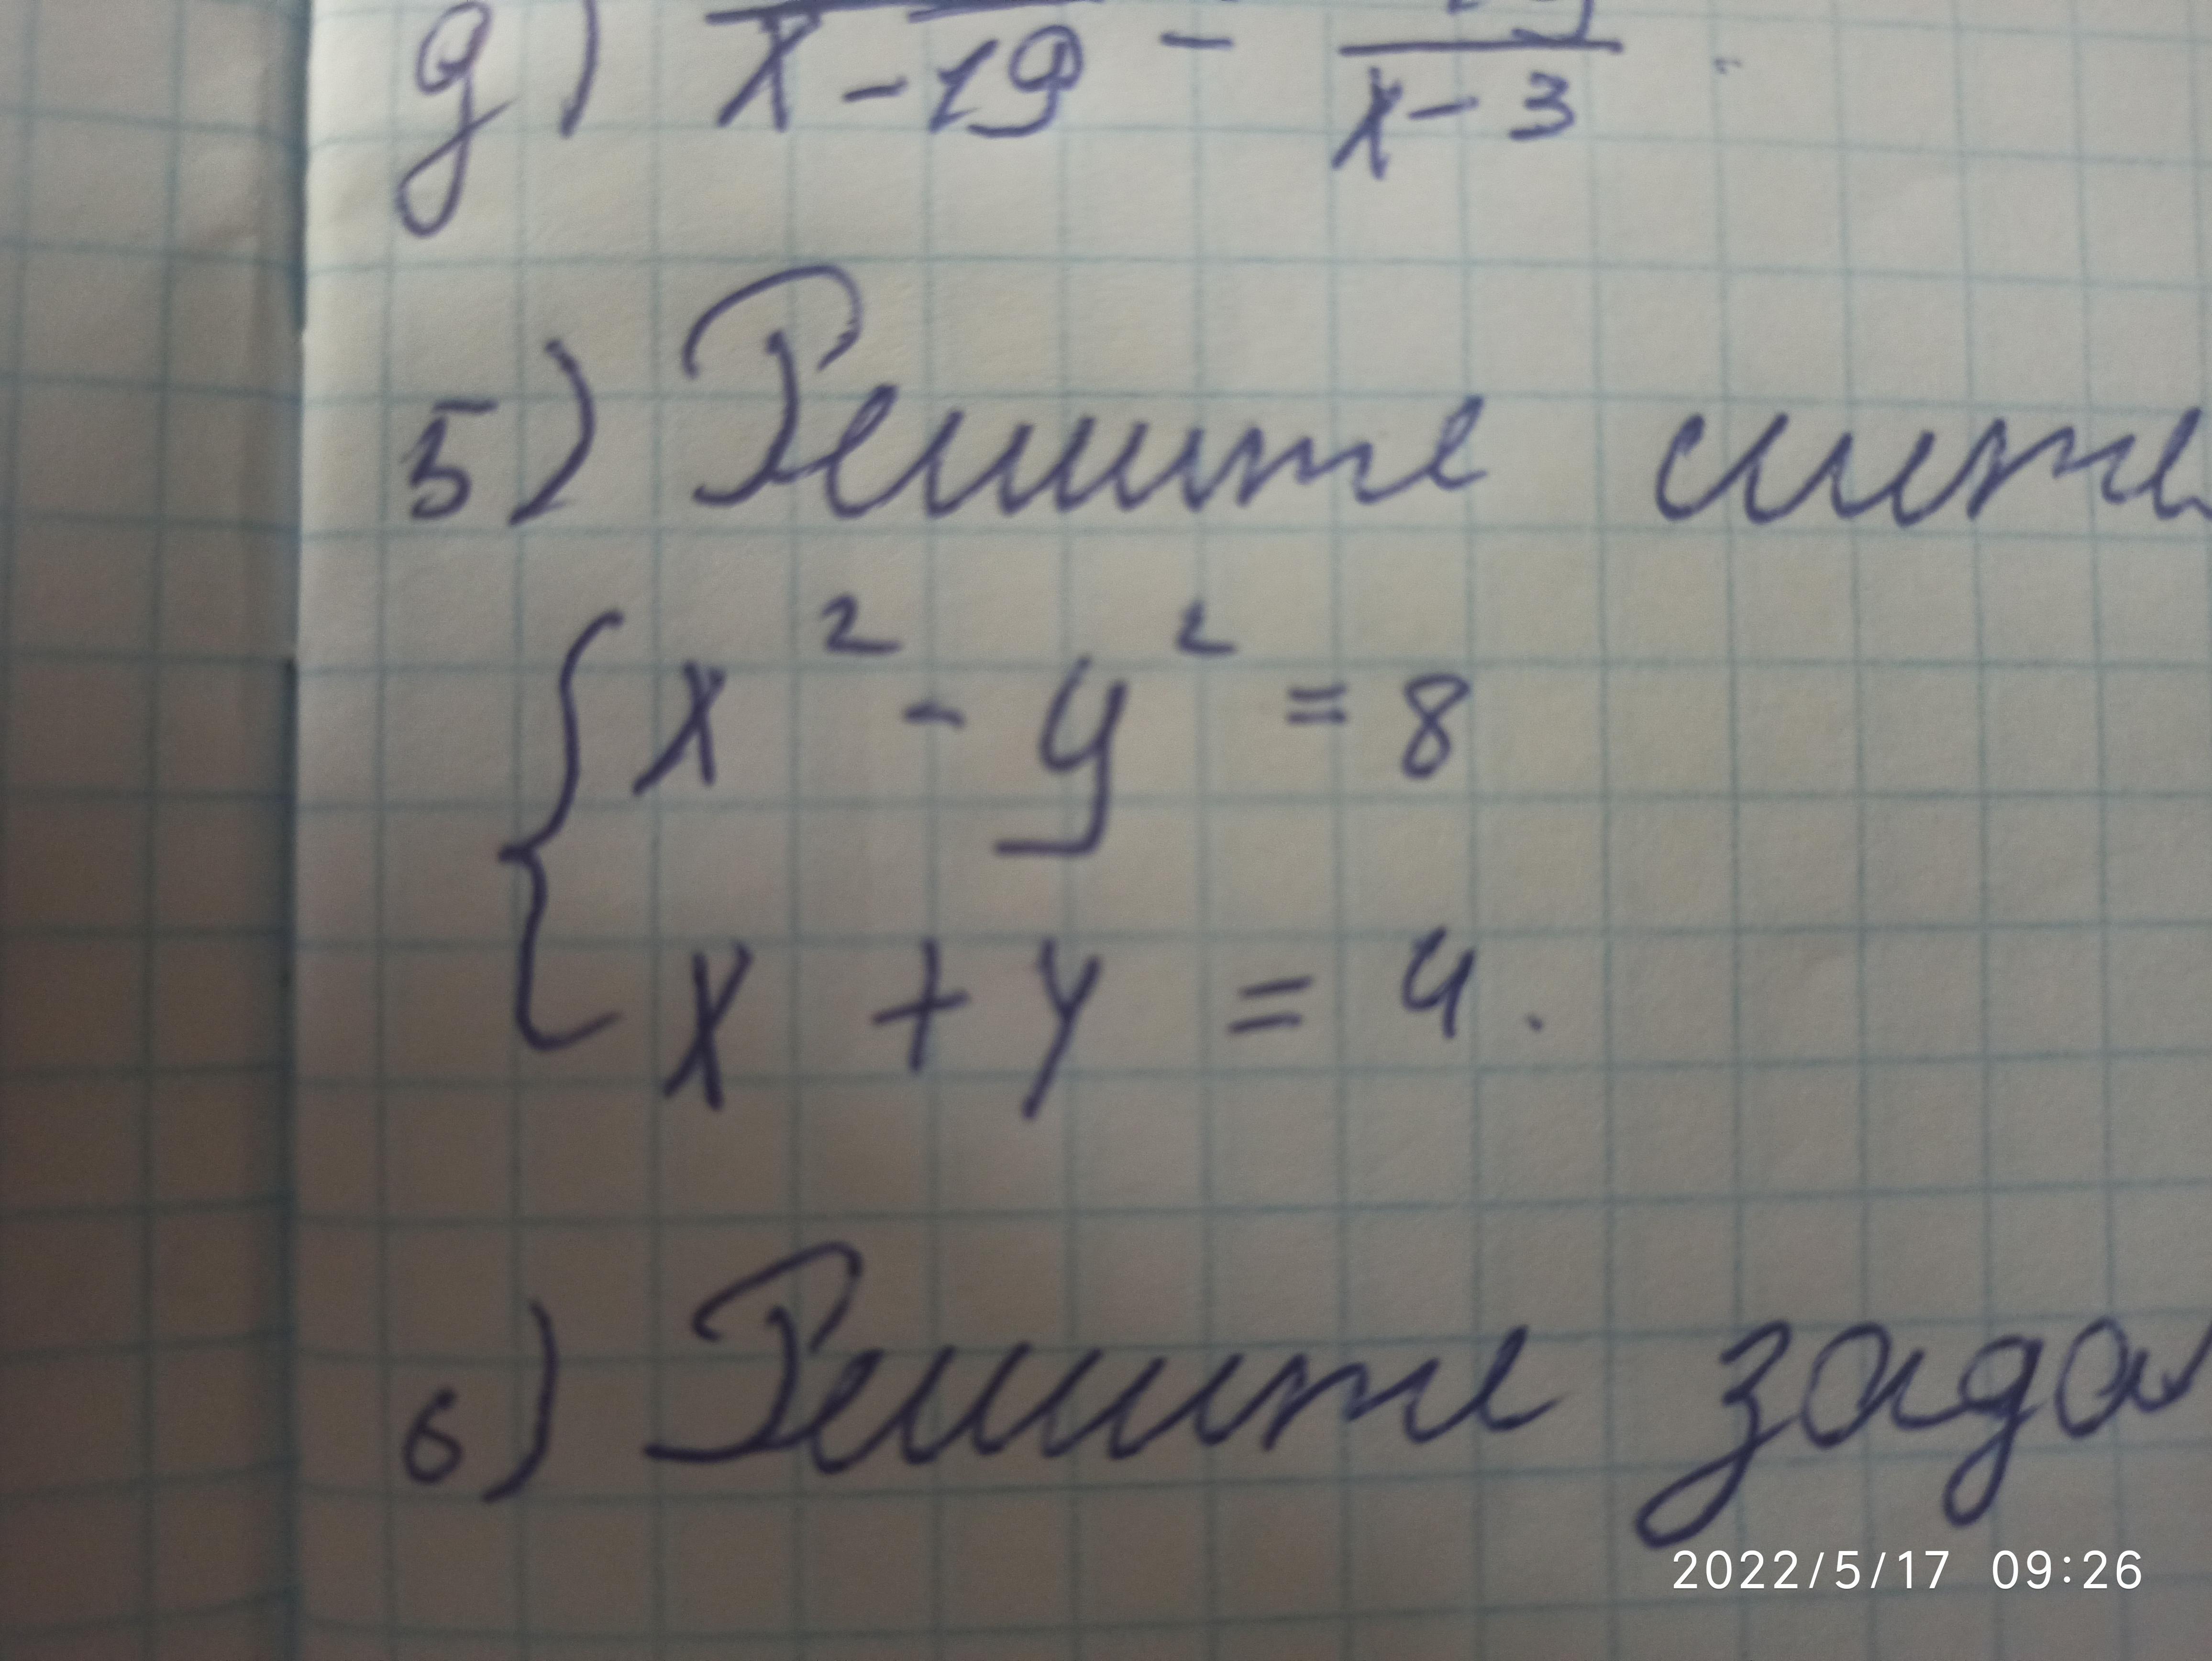 д) x-19 - x-3
5) Решите
{ x² - y² = 8
x + y = 4.
6) Решите
2022/5/17 09:26